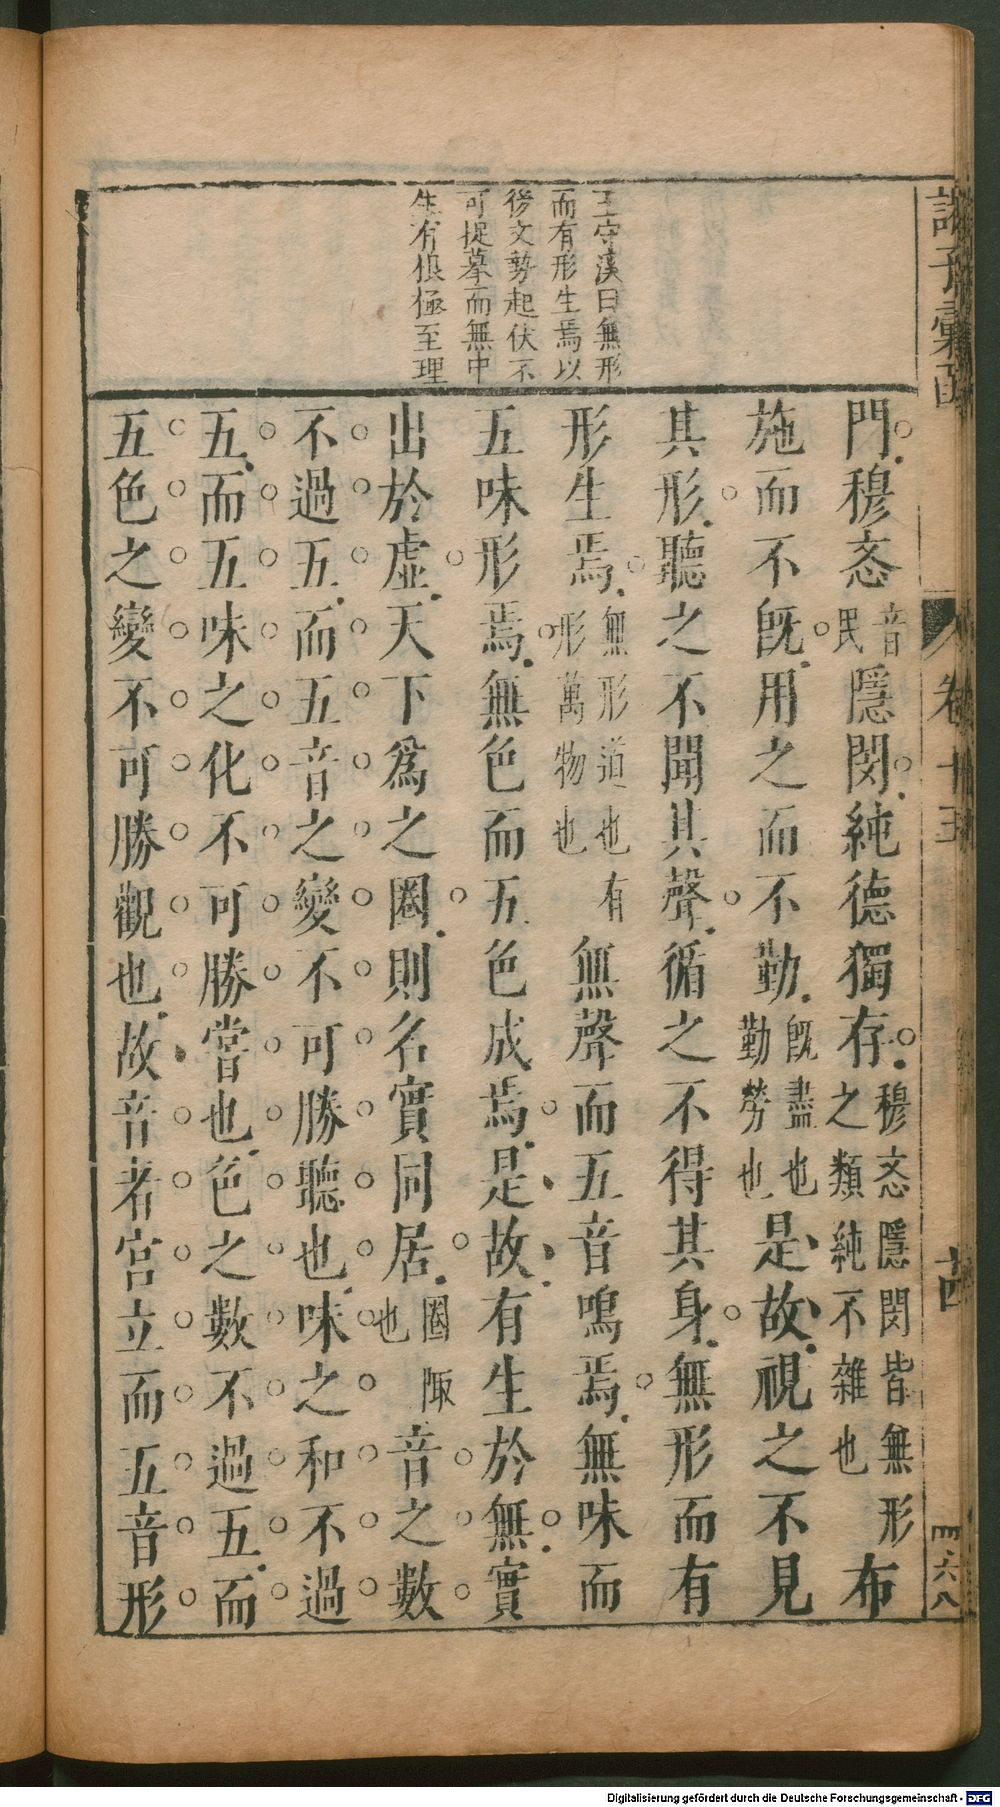 諸子彙函
卷十五
十四
王守溪曰無形
而有形生焉以
後文勢起伏不
可捉摹而無中
生有根極至理
門穆忞音民隱閔純德獨存穆忞隱閔皆無形之類純不雜也布
施而不旣用之而不勤旣盡也勤勞也是故視之不見
其形聽之不聞其聲循之不得其身無形而有
形生焉無形道也有形萬物也無聲而五音鳴焉無味而
五味形焉無色而五色成焉是故有生於無實
出於虛天下爲之圈則名實同居圈陬也音之數
不過五而五音之變不可勝聽也味之和不過
五而五味之化不可勝嘗也色之數不過五而
五色之變不可勝觀也故音者宮立而五音形
Digitalisierung gefördert durch die Deutsche Forschungsgemeinschaft - DFG